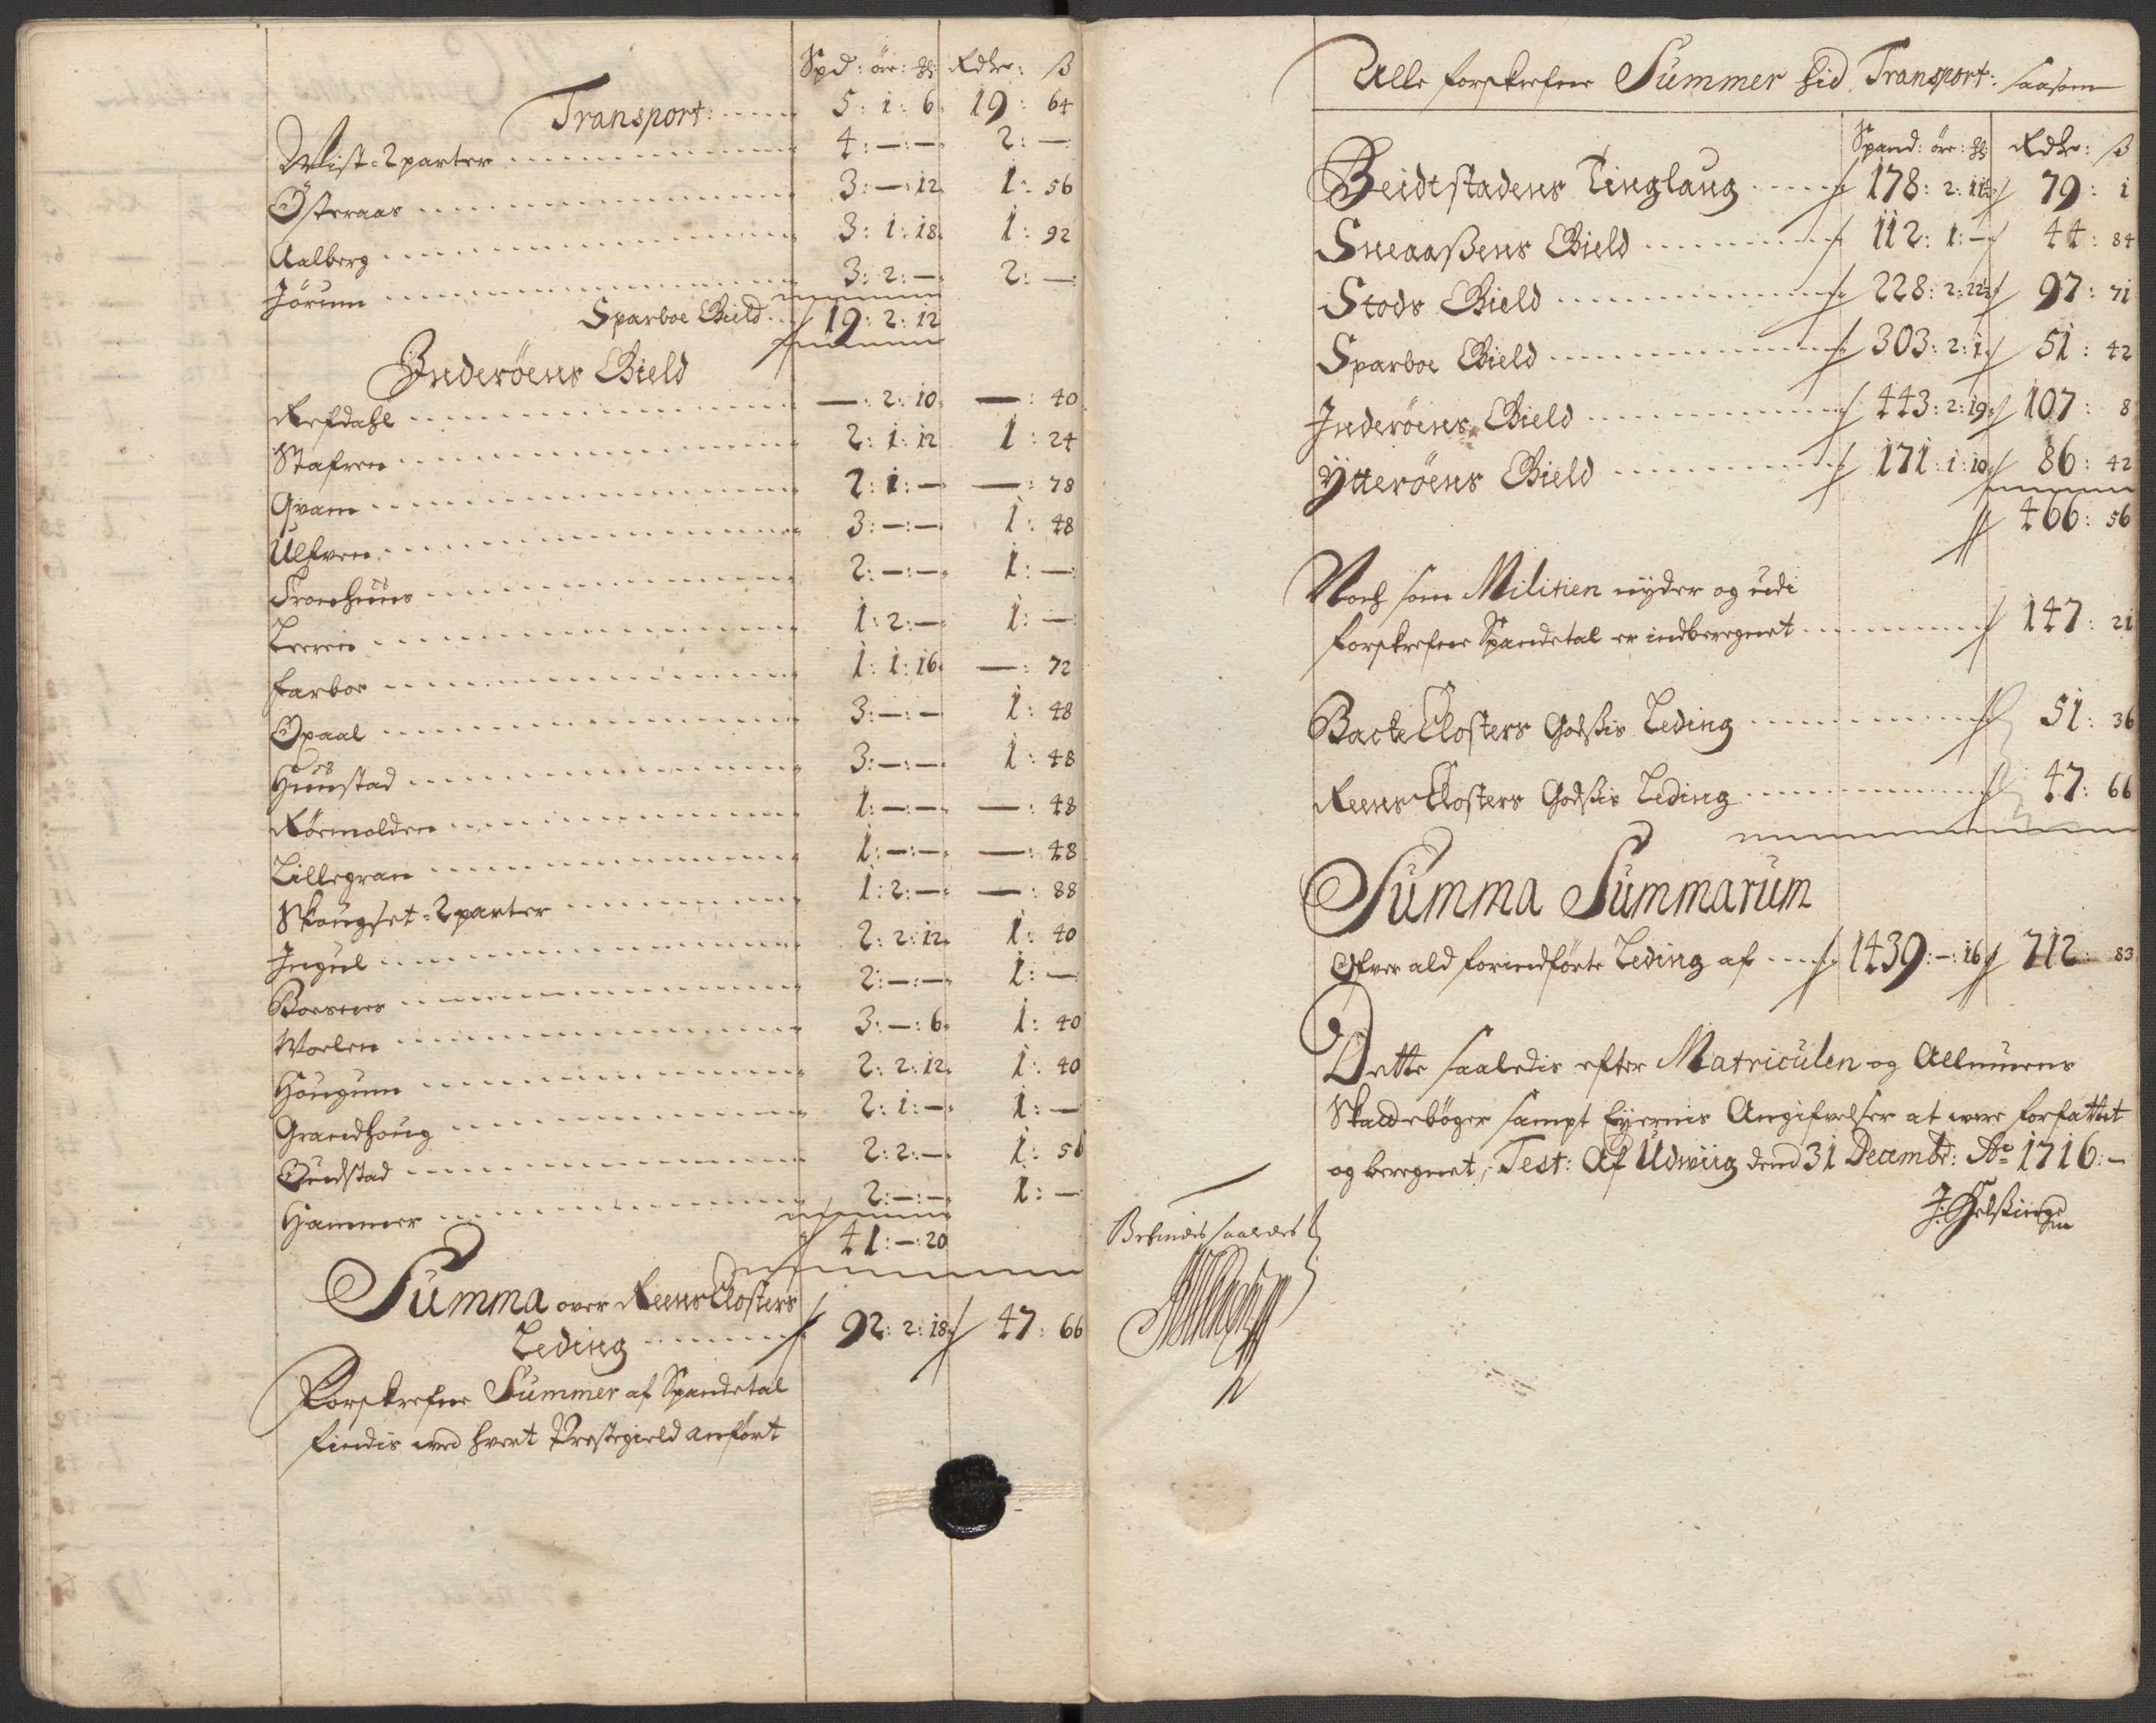 Spd: öre: ℔: Rdlr: ß
Transport: 5: 1: 6. 19: 64
Wist=2 parter 4: —: — 2: —
Østeraas 3: —: 12. 1: 56
Aalberg 3: 1: 18. 1: 92
Jörum 3: 2: — 2: —
Sparboe Gield 19: 2: 12
Inderöens Gield
Refdahl —: 2: 10. —: 40
Stafren 2: 1: 12 1: 24
Qvam 2: 1: — —: 78
Ulfven 3: —: — 1: 48
Tronhuus 2: —: — 1: —
Leeren 1: 2: — 1: —
Farboe 1: 1: 16. —: 72
Opaal 3: —: — 1: 48
Huustad 3: —: — 1: 48
Rösmolden 1: —: — —: 48
Lillegran 1: —: — —: 48
Skougset=2 parter 1: 2: — —: 88
Ingul 2: 2: 12. 1: 40
Borsnes 2: —: — 1: —
Woelen 3: —: 6. 1: 40
Hougum 2: 2: 12. 1: 40
Grandhoug 2: 1: — 1: —
Qundstad 2: 2: — 1: 56
Hammer 2: —: — 1: —
41: —: 20
Summa over Reens Closters
Leding 92: 2: 18. 47: 66
Forskrefne Summer af Spandetal
findis ved hvert Prestegield anfört
Alle forskrefne Summer hid Transport: saasom
Spand: öre: ℔: Rdlr: ß
Beidtstadens Tinglaug 178: 2: 11½ 79: 1
Sneaaßens Gield 112: 1: — 44: 84
Stods Gield 228: 2: 22½ 97: 71
Sparboe Gield 303: 2: 1. 51: 42
Inderöens Gield 443: 2: 19. 107: 8
Ytteröens Gield 171: 1: 10. 86: 42
466: 56
Noch som Militien nyder og udi
forskrefne Spandetal er indberegnet 147: 21
Backe Closters Godßis Leding 51: 36
Reens Closters Godßis Leding 47: 66
Summa Summarum
Ofver ald forindförte Leding af 1439: —: 16 712: 83
Dette saaledis efter Matriculen og Allmuens
Skatdebøger sampt Eyernis Angifvelser at være forfattet
og beregnet, Test: Af Udwiig dend 31 Decembr: Ao 1716: —
Befindes saaledes